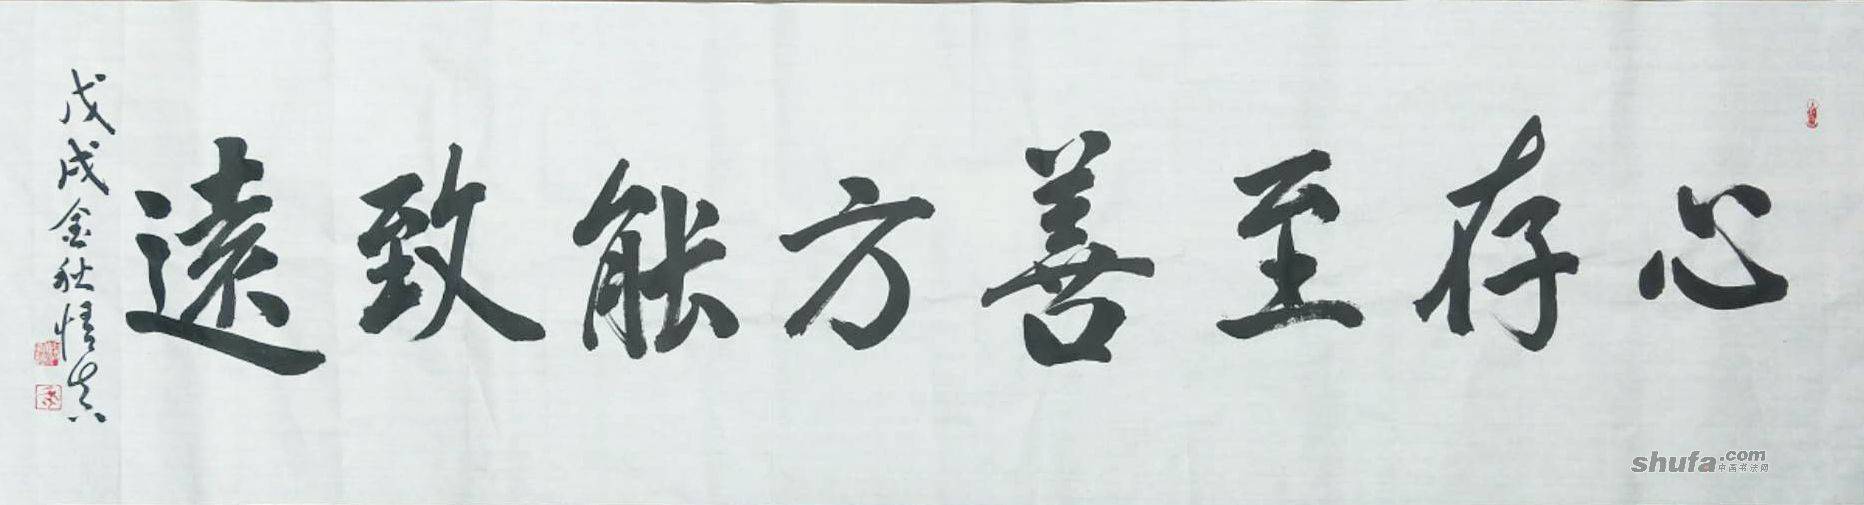 心存至善方能致遠
戊戌金秋悟真
shufa.com
中国书法网